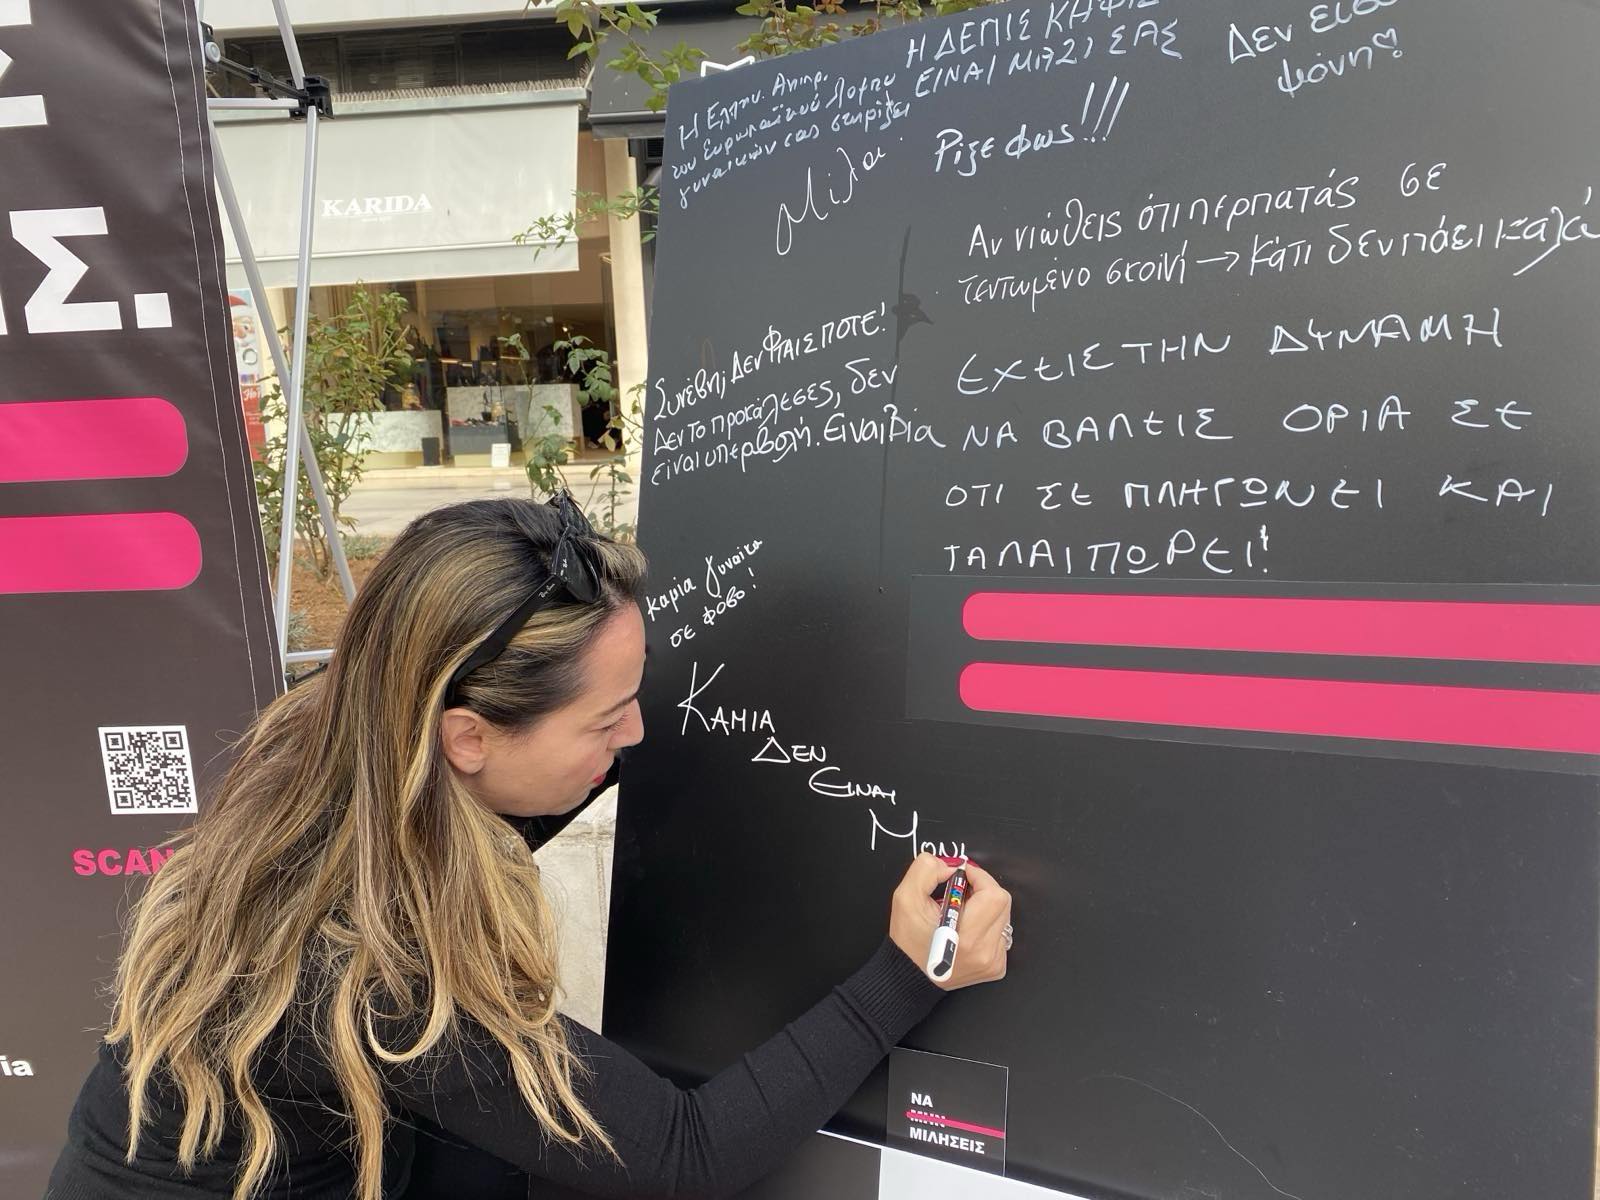 Σ.
KARIDA
SCAN
ia
Η Ελλην. Αντιπρ.
του Ευρωπαϊκού Λόμπυ
γυναικών σας στηρίζει
Η ΔΕΠΙΣ ΚΗΦΙΣ
ΕΙΝΑΙ ΜΑΖΙ ΣΑΣ
Δεν είσαι
μόνη
Μίλα
Ρίξε φως!!!
Αν νιώθεις ότι περπατάς σε
τεντωμένο σκοινί → κάτι δεν πάει καλά
Συνέβη; ΔΕΝ ΦΤΑΙΣ ΠΟΤΕ!
Δεν το προκάλεσες, δεν
είναι υπερβολή. Είναι Βία
ΕΧΕΙΣ ΤΗΝ ΔΥΝΑΜΗ
ΝΑ ΒΑΛΕΙΣ ΟΡΙΑ ΣΕ
ΟΤΙ ΣΕ ΠΛΗΓΩΝΕΙ ΚΑΙ
ΤΑΛΑΙΠΩΡΕΙ!
καμια γυναίκα
σε φοβο!
ΚΑΜΙΑ
ΔΕΝ
ΕΙΝΑΙ
ΜΟΝΙ
ΝΑ
ΜΗΝ
ΜΙΛΗΣΕΙΣ